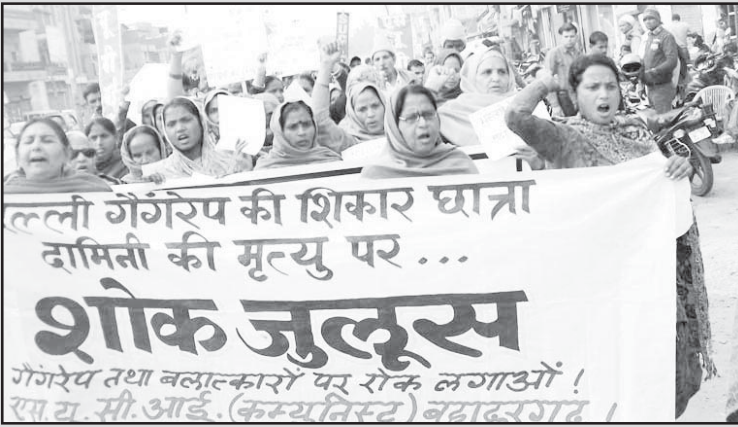 ल्ली गैंगरेप की शिकार छात्रा
दामिनी की मृत्यु पर ...
शोक जुलूस
गैंगरेप तथा बलात्कारों पर रोक लगाओं !
एस.यू.सी.आई.(कम्युनिस्ट) बहादुरगढ़ ।